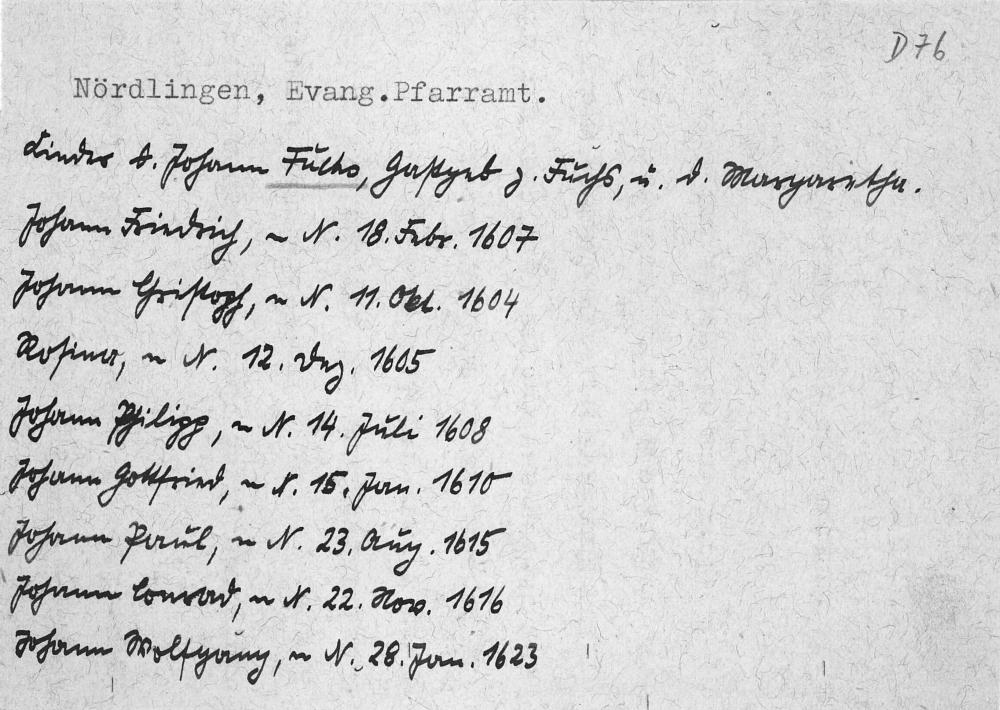 D 76
Nördlingen, Evang.Pfarramt.
Kinder d. Johann Fuchs, Gastgeb z. Fuchs, u. d. Margaretha.
Johann Friedrich, ~ N. 18. Febr. 1607
Johann Christoph, ~ N. 11. Okt. 1604
Rosina, ~ N. 12. Dez. 1605
Johann Philipp, ~ N. 14. Juli 1608
Johann Gottfried, ~ N. 15. Jan. 1610
Johann Paul, ~ N. 23. Aug. 1615
Johann Conrad, ~ N. 22. Nov. 1616
Johann Wolfgang, ~ N. 28. Jan. 1623